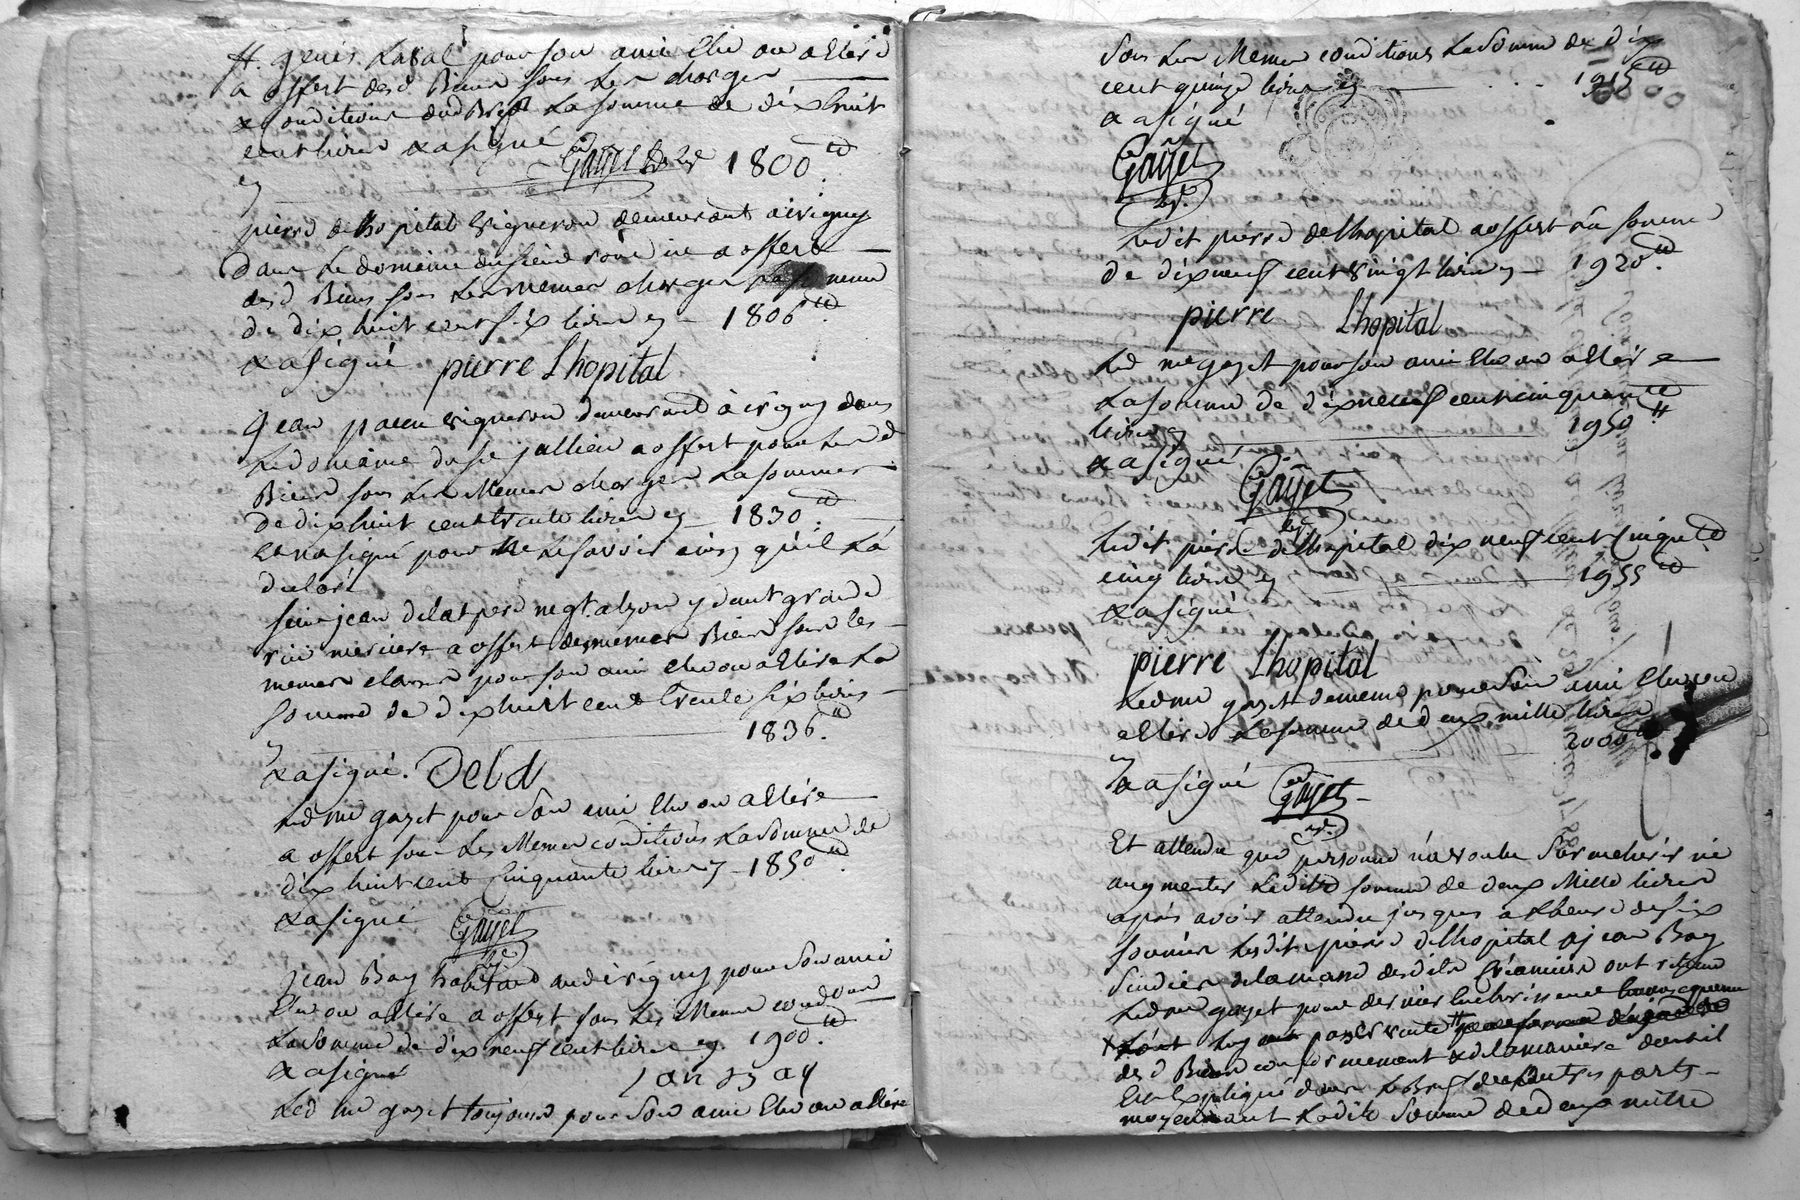 St. genis Laval pour son ami Elu ou a Elire
a offert desd Biens sous les charges
& conditions dud Bref La somme de dix huit
cent livres & a signé Gayet 1800 ₶
pierre delhopital vigneron demeurant a irigny
dans Le domaine du sieur a offert
desd Biens sous Les memes charges La somme
de dix huit cent six livres cy 1806 ₶
& a signé pierre Lhopital
Jean vigneron demeurant à irigny dans
Le domaine du sr jullien a offert pour Lesd
Biens sous Les Memes charges La somme
de dix huit cent trente livres cy 1830 ₶
Et n'a signé pour ne Le savoir ainsy qu'il L'a
declaré
sieur jean negt a lyon y dt grande
rüe merciere a offert des memes Biens sous les
memes clauses pour son ami elu ou a Elire La
somme de dix huit cent trente six livres
cy 1836 ₶
& a signé.
Led me gayet pour Son ami Elu ou a Elire
a offert sous Les Memes conditions La somme de
dix huit cent Cinquante livres cy 1850 ₶
& a signé Gayet
jean Bay habitant aud irigny pour Son ami
Elu ou a Elire a offert sous Les Memes condons
La somme de dix neuf cent livres cy 1900 ₶
& a signé Ian Bay
Led me gayet toujours pour Son ami Elu ou a Elire
sous Les Memes conditions La somme de dix neuf
cent quinze livres cy 1915 ₶
& a signé
Gayet
Ledit pierre delhopital a offert La somme
de dix neuf cent vingt livres cy 1920 ₶
pierre Lhopital
Led me gayet pour son ami Elu ou a Elire
La somme de dix neuf cent cinquante
livres cy 1950 ₶
& a signé
Gayet
Ledit pierre delhopital dix neuf cent Cinqte
cinq livres cy 1955 ₶
& a signé
pierre Lhopital
Led me gayet de meme pour Son ami Elu ou
a Elire La somme de deux mille livres
cy 2000 ₶
& a signé Gayet
Et attendu que personne n'a voulu Surencherir ni
augmenter Ladite somme de deux Mille livres
après avoir attendu jusques a L'heure de six
sonnées Lesdits pierre delhopital & jean Bay
Sindics de la masse desdits Créanciers ont retenu
Led me gayet pour dernier Encherisseur
vente
desd Biens conformement & de la maniere dont il
Est Expliqué dans Le Bref des autres parts
moyennant Ladite Somme de deux mille